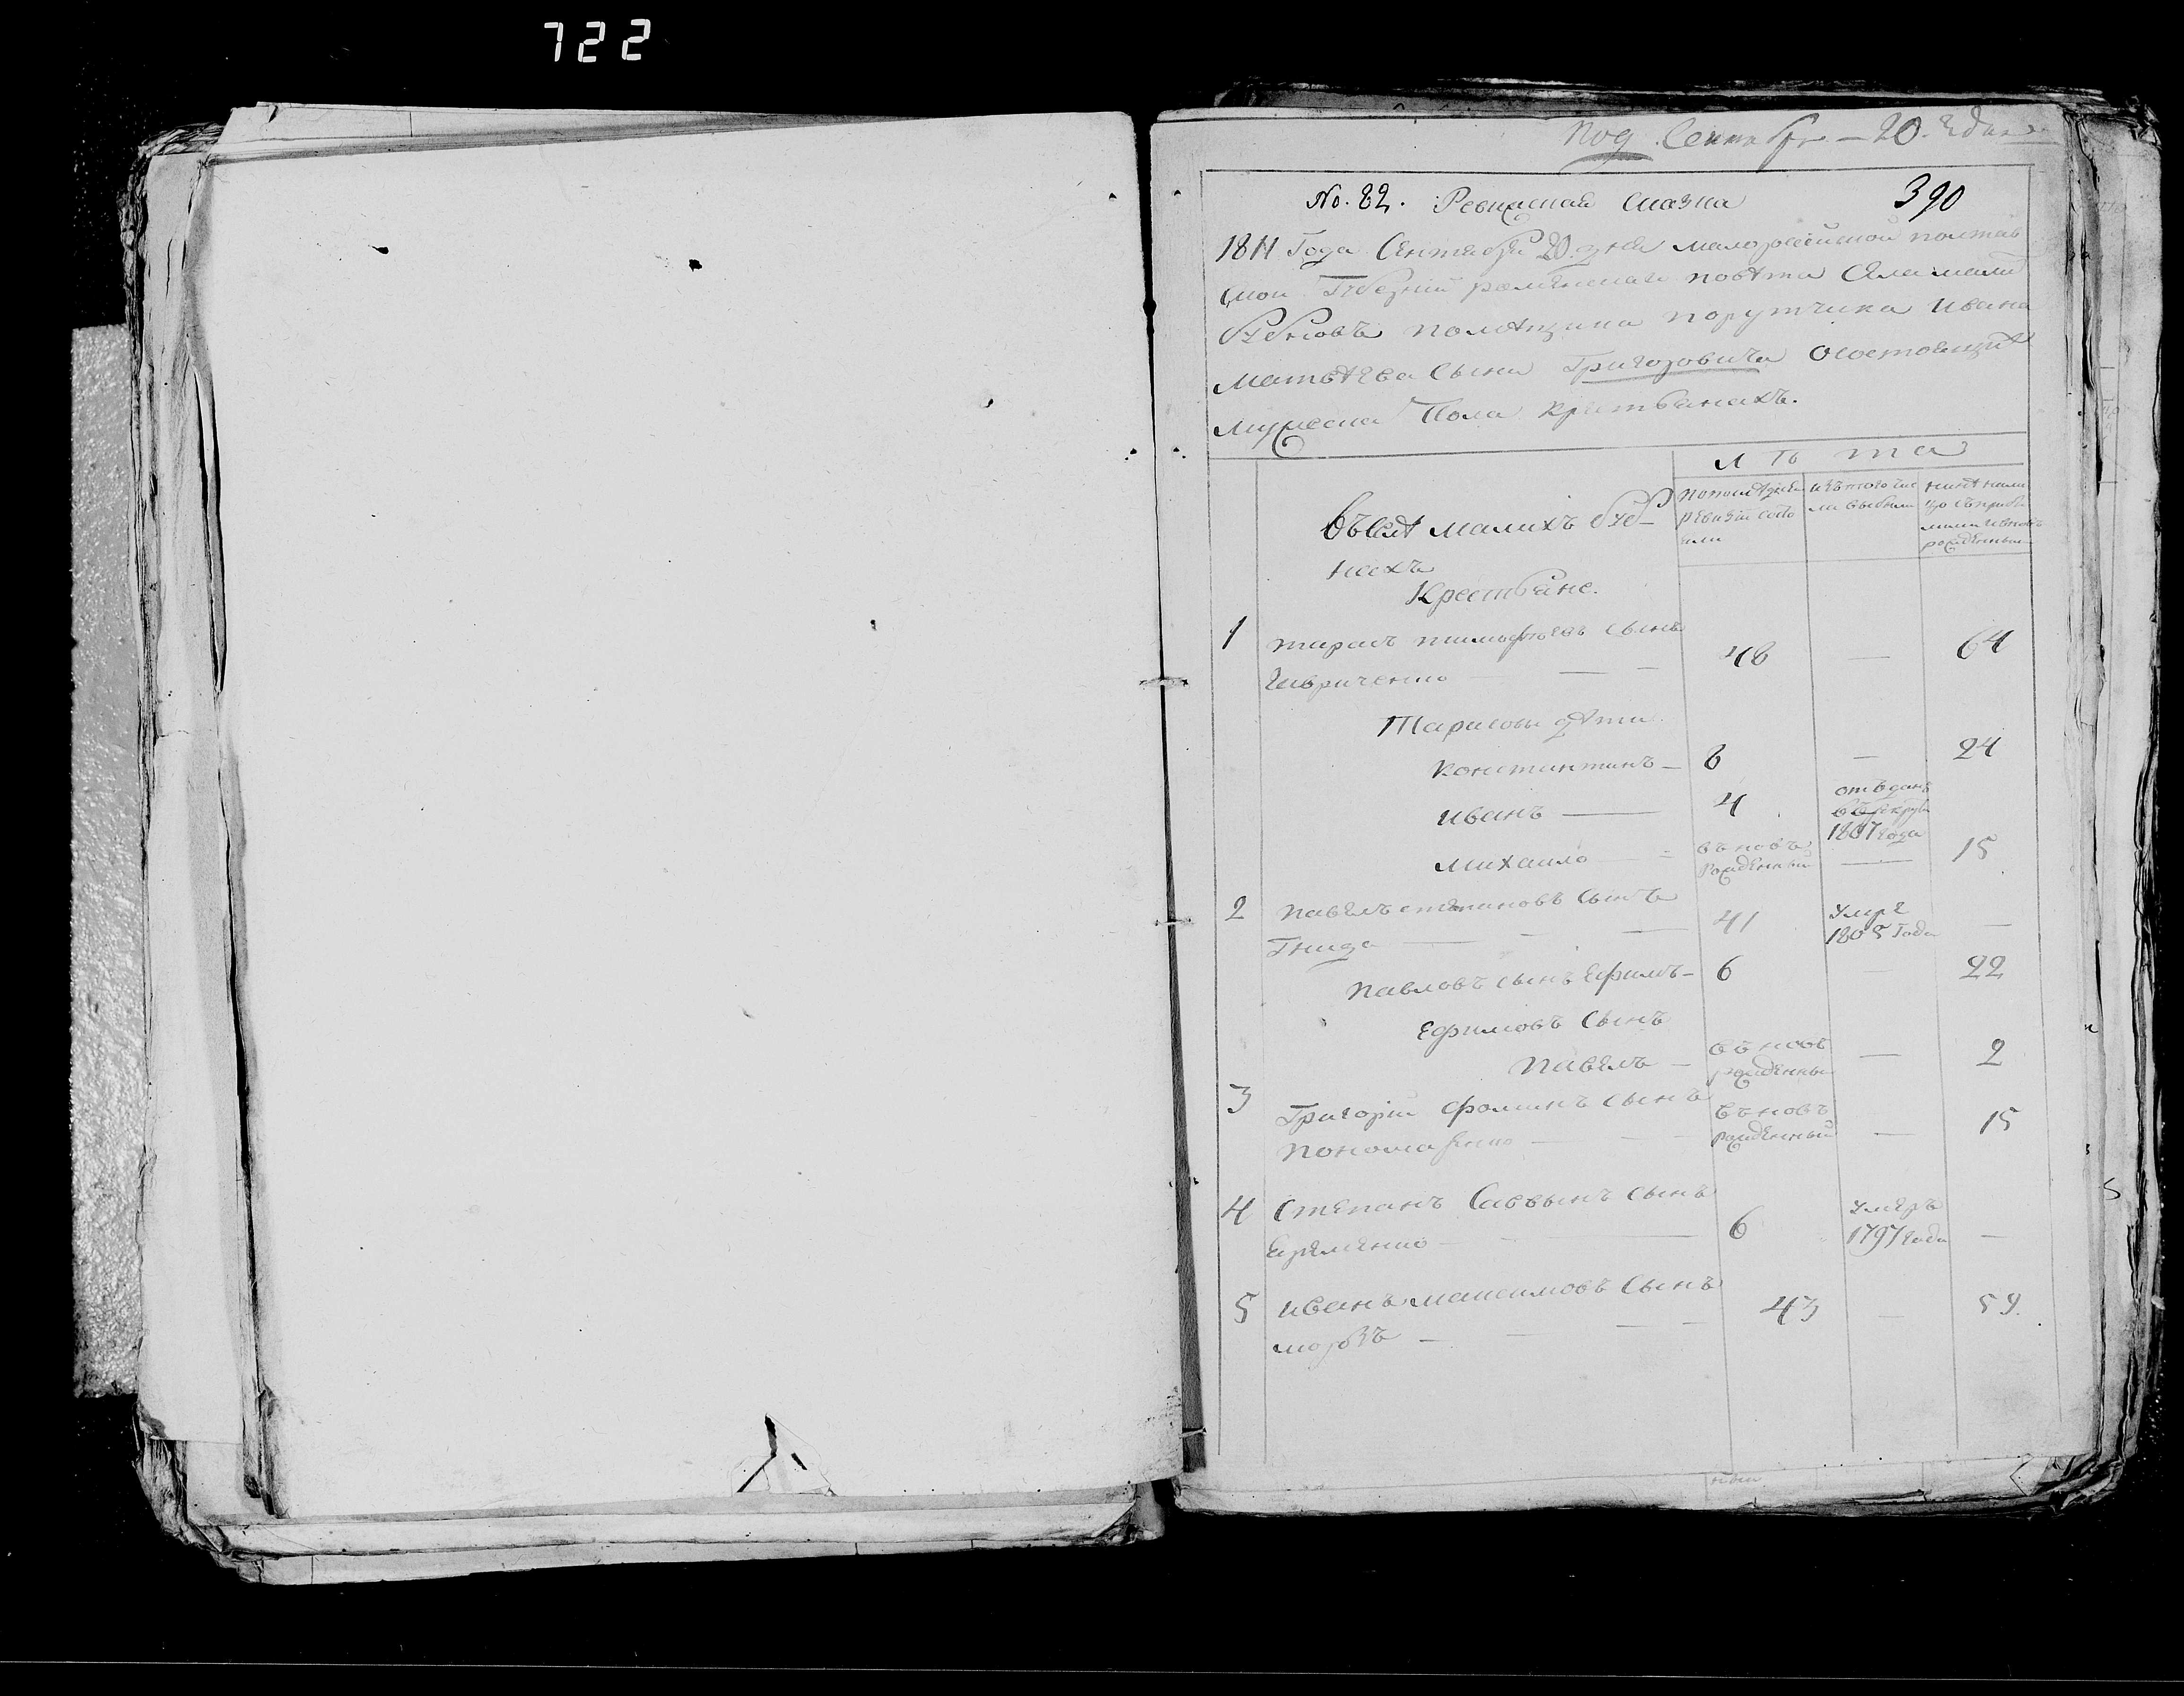 722
Под. Сентябр — 20. дня
No. 82. Ревизская сказка 390
1811 Года Сентября 20. дня малороссийской полтав
ской Губернии роменскаго повѣта Села малих
Бубновъ помѣщика порутчика Ивана
Матвѣева Сына Григоровича Осостоящих
мужеска Пола крестьянахъ.
Лѣта
въСелѣ малихъ буб
нахъ
попоследней ревизіи состояли
изътого числа выбыли
нинѣ налицо съприбылыми ивновь рожденными
Крестьяне.
1 тарасъ тимофѣевъ сынъ
Шевриченко — — 48 — 64
Тарасови дѣти
Константинъ — 8 — 24
иванъ — 4 отъданъ въ рекруты 1807 года
михаило — въновъ рожденный — 15
2 павелъ степановъ Сынъ
Гнида — — — 41 Умре 1805 Года —
павловъ сынъ Ефимъ — 6 — 22
Ефимовъ Сынъ
павелъ — въновъ рожденны — 2
3 Григорий фоминъ сынъ
пономаренко — — — въновъ рожденный — 15
4 Степанъ Саввынъ сынъ
Еременко — — 6 Умеръ 1797 Года —
5 иванъ максимовъ Сынъ
морозъ — — — — 43 — 59.